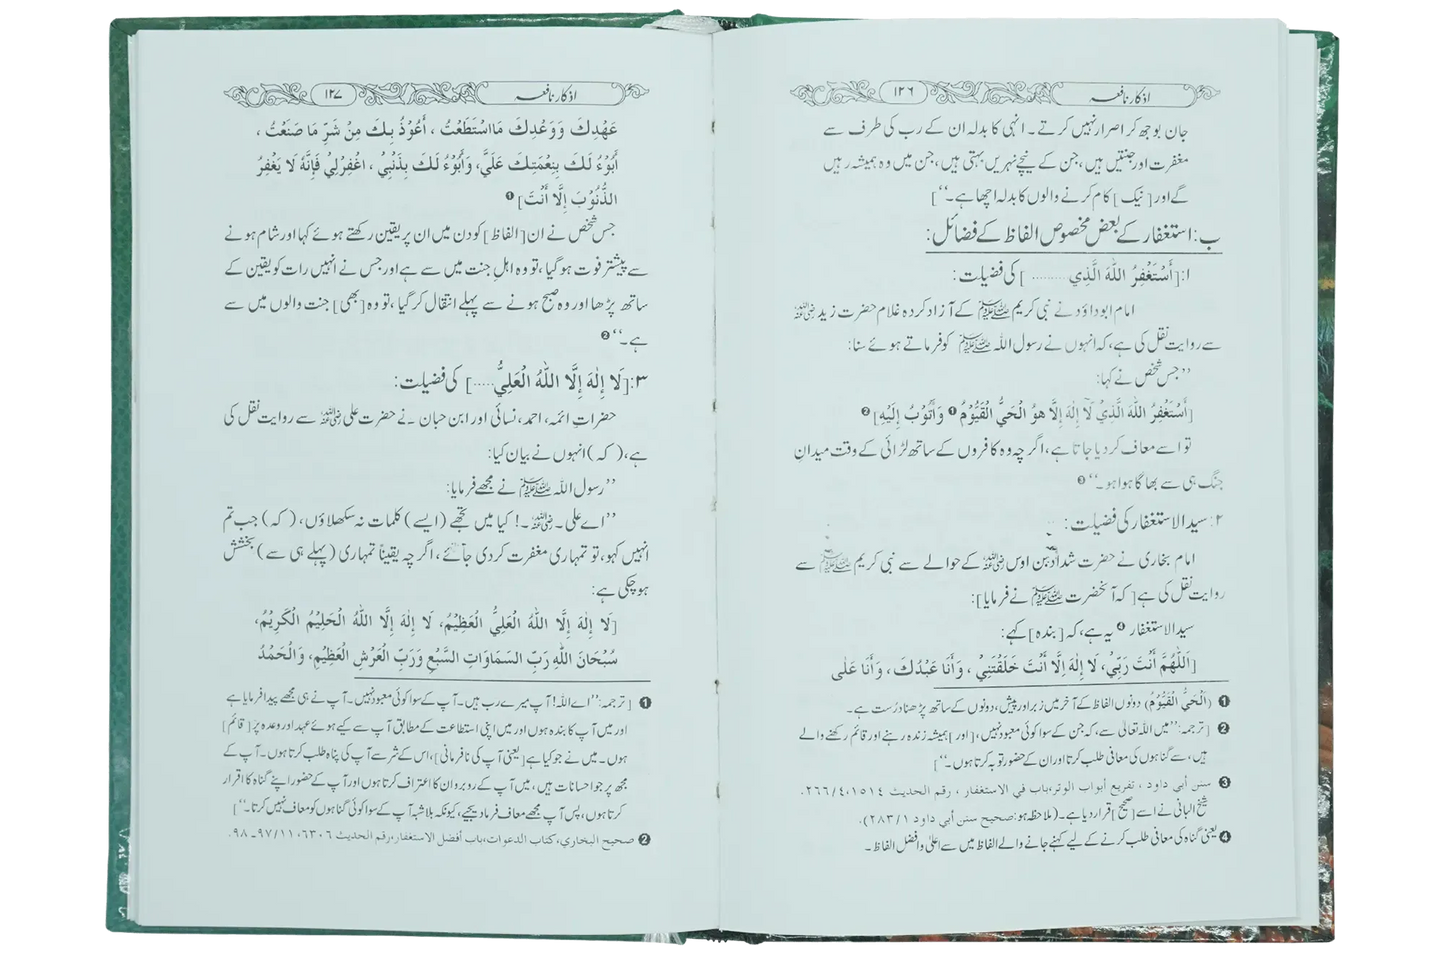 اذکار نافعہ
۱۲۶
جان بوجھ کر اصرار نہیں کرتے۔ انہی کا بدلہ ان کے رب کی طرف سے
مغفرت اور جنتیں ہیں، جن کے نیچے نہریں بہتی ہیں، جن میں وہ ہمیشہ رہیں
گے اور [ نیک ] کام کرنے والوں کا بدلہ اچھا ہے۔‘‘]
ب: استغفار کے بعض مخصوص الفاظ کے فضائل:
۱: [أَسْتَغْفِرُ اللّٰهَ الَّذِي ......... ] کی فضیلت:
امام ابوداؤد نے نبی کریم ﷺ کے آزاد کردہ غلام حضرت زید رضی اللہ عنہ
سے روایت نقل کی ہے، کہ انہوں نے رسول اللہ ﷺ کو فرماتے ہوئے سنا:
’’جس شخص نے کہا:
[أَسْتَغْفِرُ اللّٰهَ الَّذِيْ لَآ إِلٰهَ إِلَّا هُوَ الْحَيُّ الْقَيُّوْمُ ❶ وَأَتُوْبُ إِلَيْهِ] ❷
تو اسے معاف کر دیا جاتا ہے، اگرچہ وہ کافروں کے ساتھ لڑائی کے وقت میدانِ
جنگ ہی سے بھاگا ہوا ہو۔‘‘ ❸
۲: سید الاستغفار کی فضیلت:
امام بخاری نے حضرت شداد بن اوس رضی اللہ عنہ کے حوالے سے نبی کریم ﷺ سے
روایت نقل کی ہے [ کہ آنحضرت ﷺ نے فرمایا ]:
سید الاستغفار ❹ یہ ہے، کہ [بندہ] کہے:
[اَللّٰهُمَّ أَنْتَ رَبِّيْ، لَا إِلٰهَ إِلَّا أَنْتَ خَلَقْتَنِيْ ، وَأَنَا عَبْدُكَ ، وَأَنَا عَلٰى
❶ (اَلْحَيُّ الْقَيُّوْمُ) دونوں الفاظ کے آخر میں زبر اور پیش، دونوں کے ساتھ پڑھنا درست ہے۔
❷ [ترجمہ: ’’میں اللہ تعالیٰ سے، کہ جن کے سوا کوئی معبود نہیں، [اور ] ہمیشہ زندہ رہنے اور قائم رکھنے والے
ہیں، سے گناہوں کی معافی طلب کرتا اور ان کے حضور توبہ کرتا ہوں۔‘‘]
❸ سنن أبي داود ، تفريع أبواب الوتر، باب في الاستغفار ، رقم الحديث ١٥١٤، ٤/٢٦٦.
شیخ البانی نے اسے [صحیح ] قرار دیا ہے۔ (ملاحظہ ہو: صحيح سنن أبي داود ١/٢٨٣).
❹ یعنی گناہ کی معانی طلب کرنے کے لیے کہنے جانے والے الفاظ میں سے اعلیٰ و افضل الفاظ۔
اذکار نافعہ
۱۲۷
عَهْدِكَ وَوَعْدِكَ مَا اسْتَطَعْتُ ، أَعُوْذُ بِكَ مِنْ شَرِّ مَا صَنَعْتُ ،
أَبُوْءُ لَكَ بِنِعْمَتِكَ عَلَيَّ، وَأَبُوْءُ لَكَ بِذَنْبِيْ ، اغْفِرْلِيْ فَإِنَّهُ لَا يَغْفِرُ
الذُّنُوْبَ إِلَّا أَنْتَ] ❶
جس شخص نے ان [الفاظ ] کو دن میں ان پر یقین رکھتے ہوئے کہا اور شام ہونے
سے پیشتر فوت ہو گیا، تو وہ اہلِ جنت میں سے ہے اور جس نے انہیں رات کو یقین کے
ساتھ پڑھا اور وہ صبح ہونے سے پہلے انتقال کر گیا ، تو وہ [بھی] جنت والوں میں سے
ہے۔‘‘ ❷
۳: [لَا إِلٰهَ إِلَّا اللّٰهُ الْعَلِيُّ.....] کی فضیلت:
حضراتِ ائمہ، احمد، نسائی اور ابن حبان نے حضرت علی رضی اللہ عنہ سے روایت نقل کی
ہے، (کہ) انہوں نے بیان کیا:
’’رسول اللہ ﷺ نے مجھے فرمایا:
’’اے علی۔ رضی اللہ عنہ۔! کیا میں تجھے (ایسے ) کلمات نہ سکھلاؤں، (کہ ) جب تم
انہیں کہو، تو تمہاری مغفرت کر دی جائے ، اگرچہ یقیناً تمہاری (پہلے ہی سے ) بخشش
ہو چکی ہے:
[لَا إِلٰهَ إِلَّا اللّٰهُ الْعَلِيُّ الْعَظِيْمُ، لَا إِلٰهَ إِلَّا اللّٰهُ الْحَلِيْمُ الْكَرِيْمُ،
سُبْحَانَ اللّٰهِ رَبِّ السَّمَاوَاتِ السَّبْعِ وَرَبِّ الْعَرْشِ الْعَظِيْمِ، وَالْحَمْدُ
❶ [ ترجمہ: ’’اے اللہ! آپ میرے رب ہیں۔ آپ کے سوا کوئی معبود نہیں۔ آپ نے ہی مجھے پیدا فرمایا ہے
اور میں آپ کا بندہ ہوں اور میں اپنی استطاعت کے مطابق آپ سے کیے ہوئے عہد اور وعدہ پر [ قائم ]
ہوں۔ میں نے جو کیا ہے [یعنی آپ کی نافرمانی ]، اس کے شر سے آپ کی پناہ طلب کرتا ہوں۔ آپ کے
مجھ پر جو احسانات ہیں، میں آپ کے روبرو ان کا اعتراف کرتا ہوں اور آپ کے حضور اپنے گناہ کا اقرار
کرتا ہوں، پس آپ مجھے معاف فرما دیجیے، کیونکہ بلاشبہ آپ کے سوا کوئی گناہوں کو معاف نہیں کرتا۔‘‘]
❷ صحيح البخاري، كتاب الدعوات، باب أفضل الاستغفار، رقم الحديث ٦٣٠٦، ١١/٩٧-٩٨.